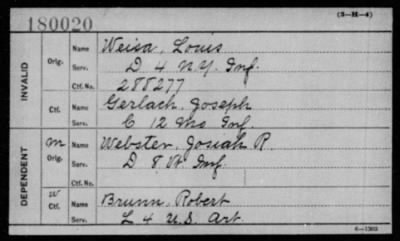 180020
(3-H-4)
INVALID
Orig. Name Weisa, Louis
Serv. D 4 N.Y. Inf.
Ctf. No. 288277
Ctf. Name Gerlach, Joseph
Serv. C 12 Mo Inf.
DEPENDENT
M
Orig. Name Webster, Josiah R.
Serv. D 8 Inf.
Ctf. No.
W
Ctf. Name Brunn, Robert
Serv. L 4 U.S. Art.